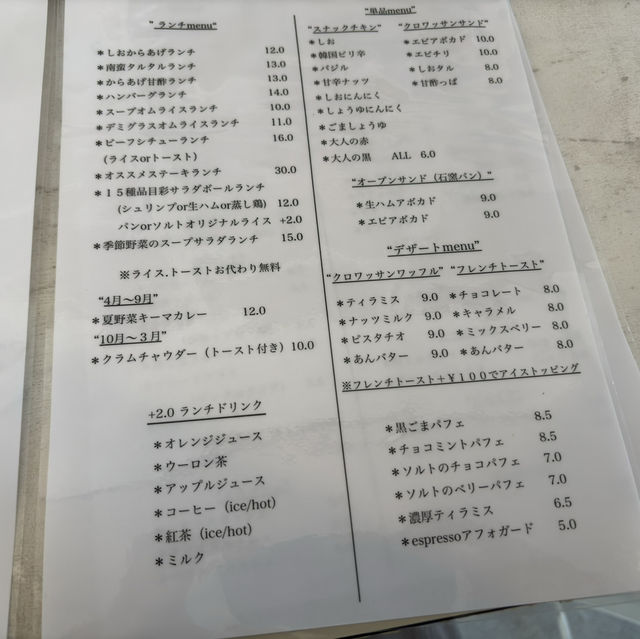 "ランチmenu"
＊しおからあげランチ 12.0
＊南蛮タルタルランチ 13.0
＊からあげ甘酢ランチ 13.0
＊ハンバーグランチ 14.0
＊スープオムライスランチ 10.0
＊デミグラスオムライスランチ 11.0
＊ビーフシチューランチ 16.0
(ライスorトースト)
＊オススメステーキランチ 30.0
＊１５種品目彩サラダボールランチ
(シュリンプor生ハムor蒸し鶏) 12.0
パンorソルトオリジナルライス +2.0
＊季節野菜のスープサラダランチ 15.0
※ライス.トーストお代わり無料
"4月〜9月"
＊夏野菜キーマカレー 12.0
"10月〜３月"
＊クラムチャウダー（トースト付き）10.0
+2.0 ランチドリンク
＊オレンジジュース
＊ウーロン茶
＊アップルジュース
＊コーヒー（ice/hot）
＊紅茶（ice/hot）
＊ミルク
"単品menu"
"スナックチキン" "クロワッサンサンド"
＊しお ＊エビアボカド 10.0
＊韓国ピリ辛 ＊エビチリ 10.0
＊バジル ＊しおタル 8.0
＊甘辛ナッツ ＊甘酢っぱ 8.0
＊しおにんにく
＊しょうゆにんにく
＊ごましょうゆ
＊大人の赤
＊大人の黒 ALL 6.0
"オープンサンド（石窯パン）"
＊生ハムアボカド 9.0
＊エビアボカド 9.0
"デザートmenu"
"クロワッサンワッフル" "フレンチトースト"
＊ティラミス 9.0 ＊チョコレート 8.0
＊ナッツミルク 9.0 ＊キャラメル 8.0
＊ピスタチオ 9.0 ＊ミックスベリー 8.0
＊あんバター 9.0 ＊あんバター 8.0
※フレンチトースト＋￥１００でアイストッピング
＊黒ごまパフェ 8.5
＊チョコミントパフェ 8.5
＊ソルトのチョコパフェ 7.0
＊ソルトのベリーパフェ 7.0
＊濃厚ティラミス 6.5
＊espressoアフォガード 5.0